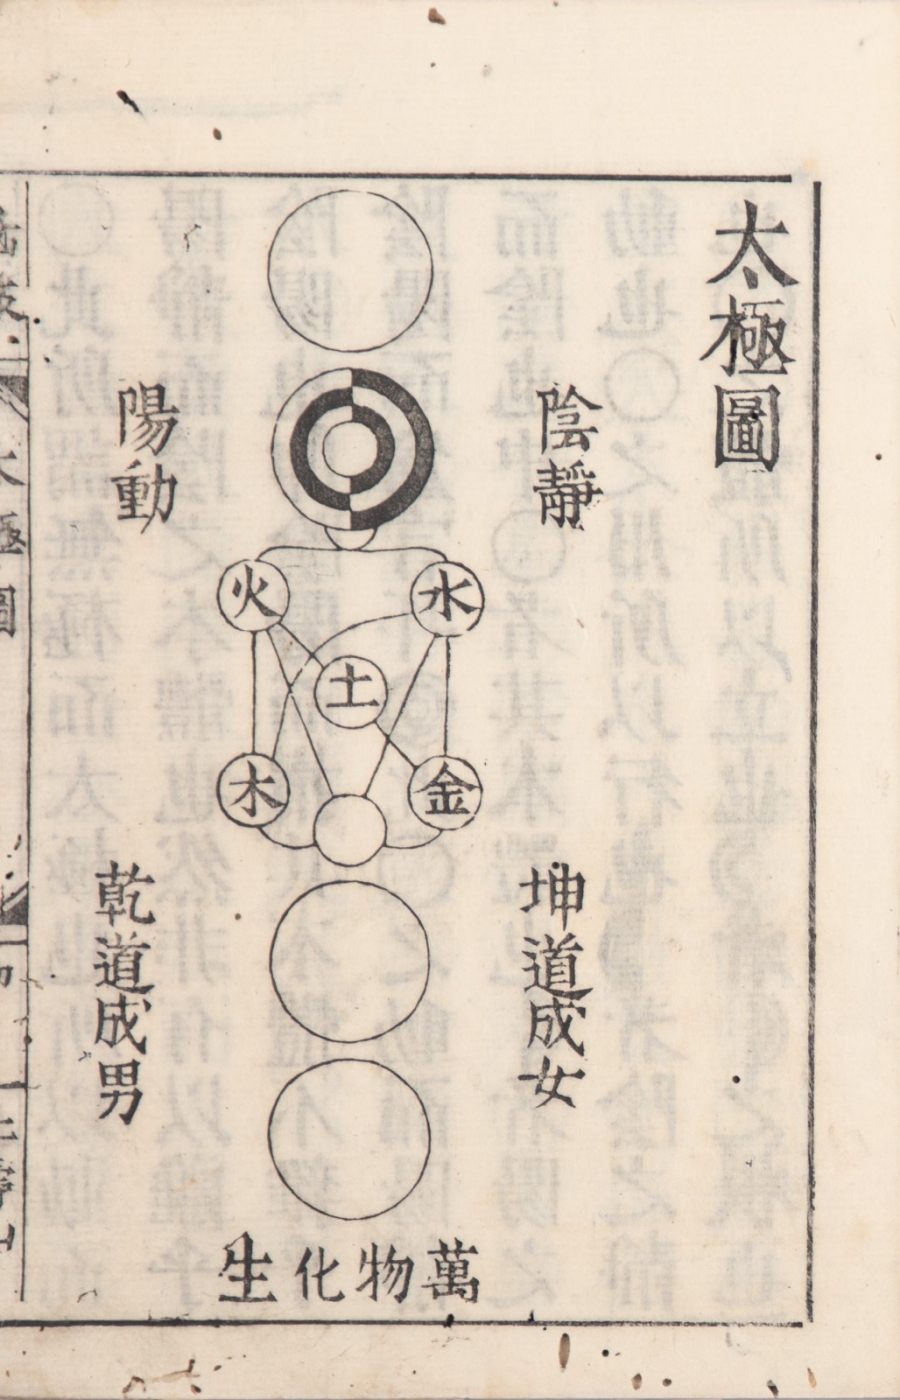 太極圖
陰靜
陽動
火
水
土
木
金
坤道成女
乾道成男
萬物化生